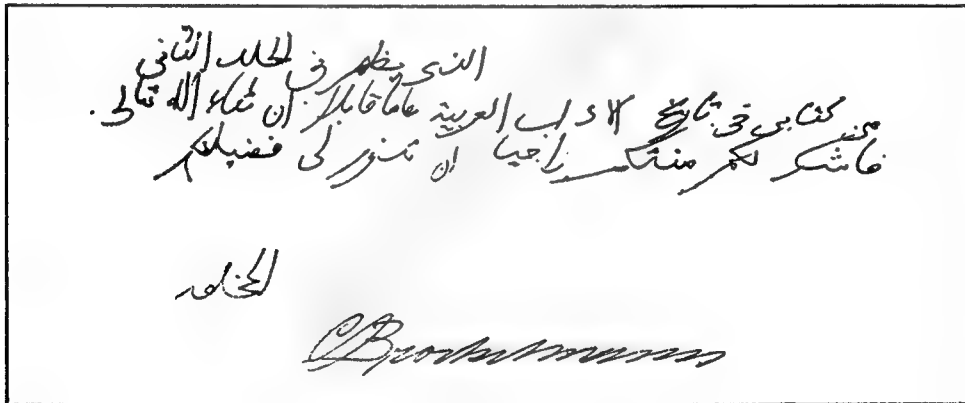 الذى يظهر فى الجلد الثانى
من كتابى فى تاريخ الاداب العربية عاما قابلا ان شاء الله تعالى.
فاشكر لكم منتكم راجيا ان لى فضلكم
المخلص
C Brockelmann